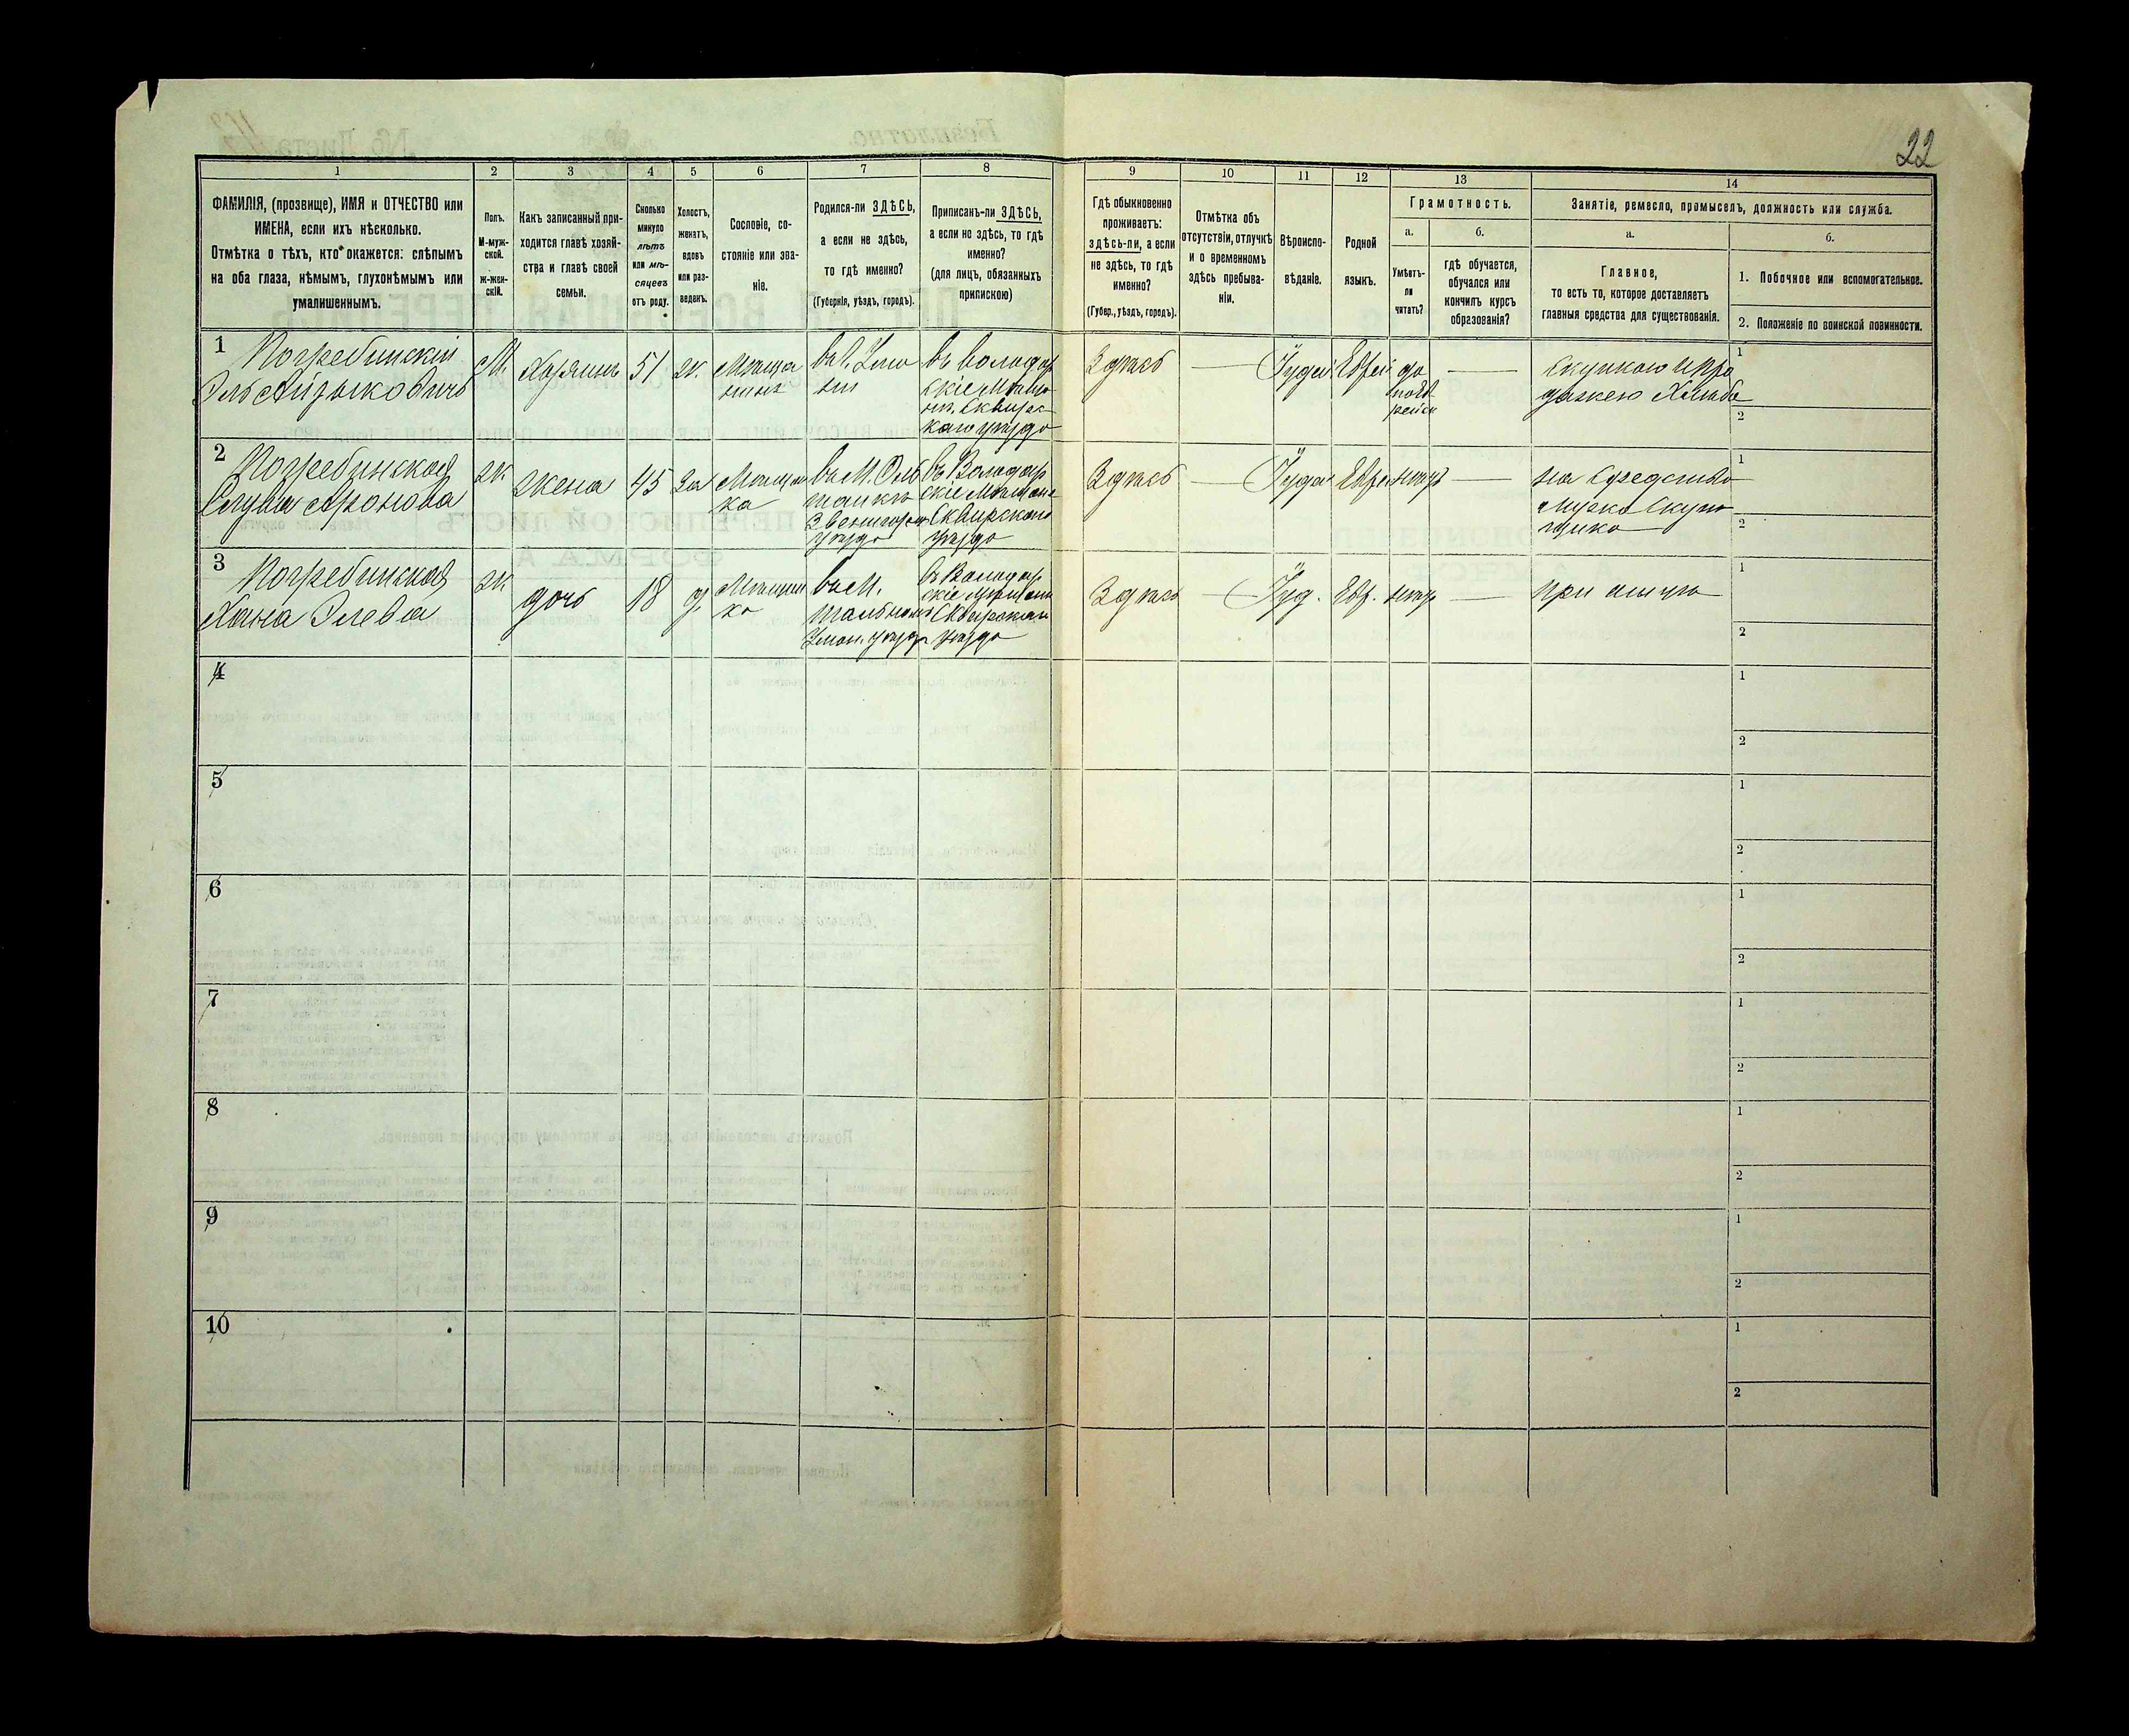 22
1
2
3
4
5
6
7
8
9
10
11
12
13
14
ФАМИЛІЯ, (прозвище), ИМЯ и ОТЧЕСТВО или
ИМЕНА, если ихъ нѣсколько.
Отмѣтка о тѣхъ, кто окажется: слѣпымъ
на оба глаза, нѣмымъ, глухонѣмымъ или
умалишеннымъ.
Полъ.
М-муж-
ской.
ж-жен-
скій.
Какъ записанный при-
ходится главѣ хозяй-
ства и главѣ своей
семьи.
Сколько
минуло
лѣтъ
или мѣ-
сяцевъ
отъ роду.
Холостъ,
женатъ,
вдовъ
или раз-
веденъ.
Сословіе, со-
стояніе или зва-
ніе.
Родился-ли ЗДѢСЬ,
а если не здѣсь,
то гдѣ именно?
(Губернія, уѣздъ, городъ).
Приписанъ-ли ЗДѢСЬ,
а если не здѣсь, то гдѣ
именно?
(для лицъ, обязанныхъ
припискою)
Гдѣ обыкновенно
проживаетъ:
здѣсь-ли, а если
не здѣсь, то гдѣ
именно?
(Губер., уѣздъ, городъ).
Отмѣтка объ
отсутствіи, отлучкѣ
и о временномъ
здѣсь пребыва-
ніи.
Вѣроиспо-
вѣданіе.
Родной
языкъ.
Грамотность.
а.
Умѣетъ-
ли
читать?
б.
гдѣ обучается,
обучался или
кончилъ курсъ
образованія?
Занятіе, ремесло, промыселъ, должность или служба.
а.
Главное,
то есть то, которое доставляетъ
главныя средства для существованія.
б.
1. Побочное или вспомогательное.
2. Положеніе по воинской повинности.
1
Погребинскій
Эль Айзыковичъ
М.
Хозяинъ
51
ж.
Мѣща
нинъ
въ г. Ума
ни
въ Володар
скіе Мѣща
не. Сквирс
каго уѣзда
Здѣсь
—
Іудей
Еврей
да
по Ев
рейск
—
Скупкою и про
дажею Хлѣба
1
2
2
Погребинская
Аронова
ж
жена
45
За
Мѣщан
ка
въ М.
Звенигород
уѣзда
въ Володар
скіе Мѣщане
Сквирскаго
уѣзда
Здѣсь
—
Іудей
Еврей
нѣтъ
—
на средства
мужа Скуп
щика
1
2
3
Погребинская
Хана Элева
ж
дочь
18
д
Мѣщан
ка
въ М.
Тальномъ
Уман. уѣзда
въ Володар
скіе Мѣщане
Сквирскаго
уѣзда
Здѣсь
—
Іуд.
Евр.
нѣтъ
—
при отцѣ
1
2
4
1
2
5
1
2
6
1
2
7
1
2
8
1
2
9
1
2
10
1
2